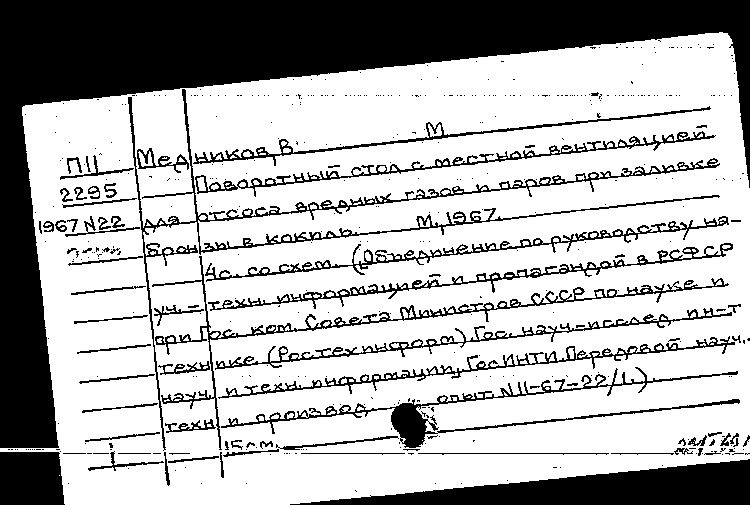 П11 Медников, В. М.
2295 Поворотный стол с местной вентиляцией
1967 N22 для отсоса вредных газов и паров при заливке
бронзы в кокиль. М., 1967.
4с. со схем. (Объединение по руководству на-
уч.-техн. информацией и пропагандой в РСФСР
при Гос. ком. Совета Министров СССР по науке и
технике (Ростехинформ). Гос. науч.-исслед. ин-т
науч. и техн. информации, ГосИНТИ. Передовой науч.-
техн. и производ. опыт. N11-67-22/1.).
15см.